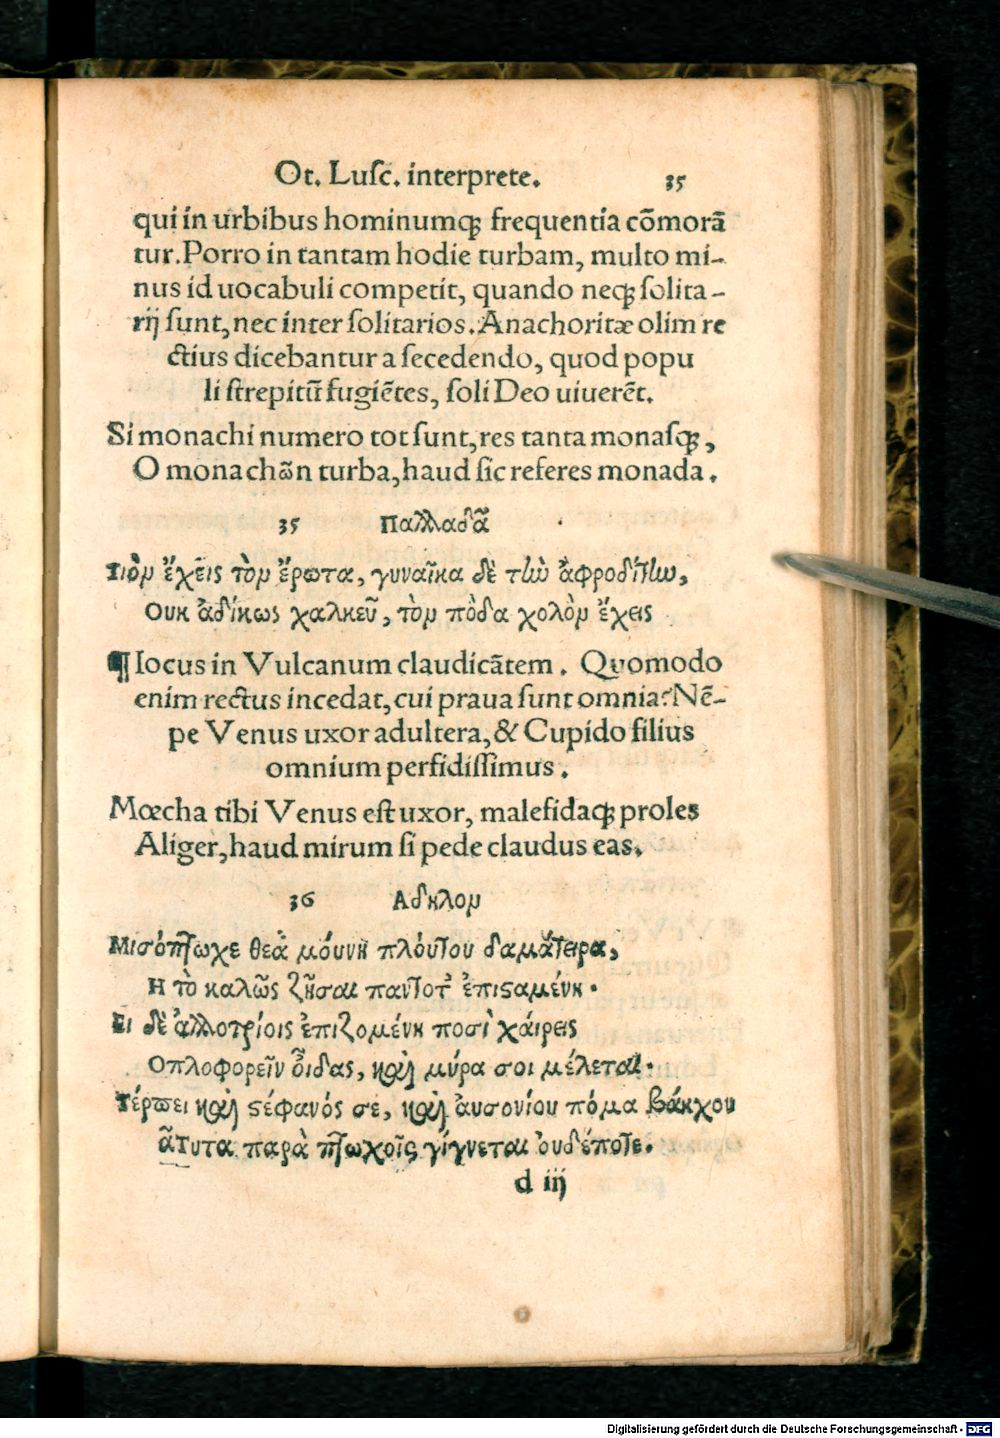 Ot. Luſc. interprete. 35
qui in urbibus hominumqꝫ frequentia cõmorã
tur. Porro in tantam hodie turbam, multo mi-
nus id uocabuli competit, quando neqꝫ ſolita-
rĳ ſunt, nec inter ſolitarios. Anachoritæ olim re
ctius dicebantur a ſecedendo, quod popu
li ſtrepitũ fugiẽtes, ſoli Deo uiuerẽt.
Si monachi numero tot ſunt, res tanta monaſqꝫ,
O monachῶn turba, haud ſic referes monada.
35 Παλλαδᾶ
Υιὸν ἔχεις τὸν ἔρωτα, γυναῖκα δὲ τὴν ἀφροδίτην,
Ουκ ἀδίκως χαλκεῦ, τὸν πὸδα χολὸν ἔχεις
¶ Iocus in Vulcanum claudicãtem. Quomodo
enim rectus incedat, cui praua ſunt omnia? Nẽ-
pe Venus uxor adultera, & Cupido filius
omnium perfidiſſimus.
Mœcha tibi Venus eſt uxor, malefidaqꝫ proles
Aliger, haud mirum ſi pede claudus eas.
36 Αδηλον
Μισόπτωχε θεὰ μόυνη πλόυτου δαμάτειρα,
Η τὸ καλῶς ζῆσαι παντοτ' ἐπιςαμένη.
Ει δὲ ἀλλοτρίοις ἐπιζομένη ποσὶ χάιρεις
Οπλοφορεῖν ὄιδας, καὶ μύρα σοι μέλεται.
Τέρπει καὶ ςέφανός σε, καὶ ἀυσονίου πόμα βάκχου
ἆτυτα παρὰ πτωχοῖς γίγνεται ὀυδέποτε.
d iĳ
Digitalisierung gefördert durch die Deutsche Forschungsgemeinschaft - DFG